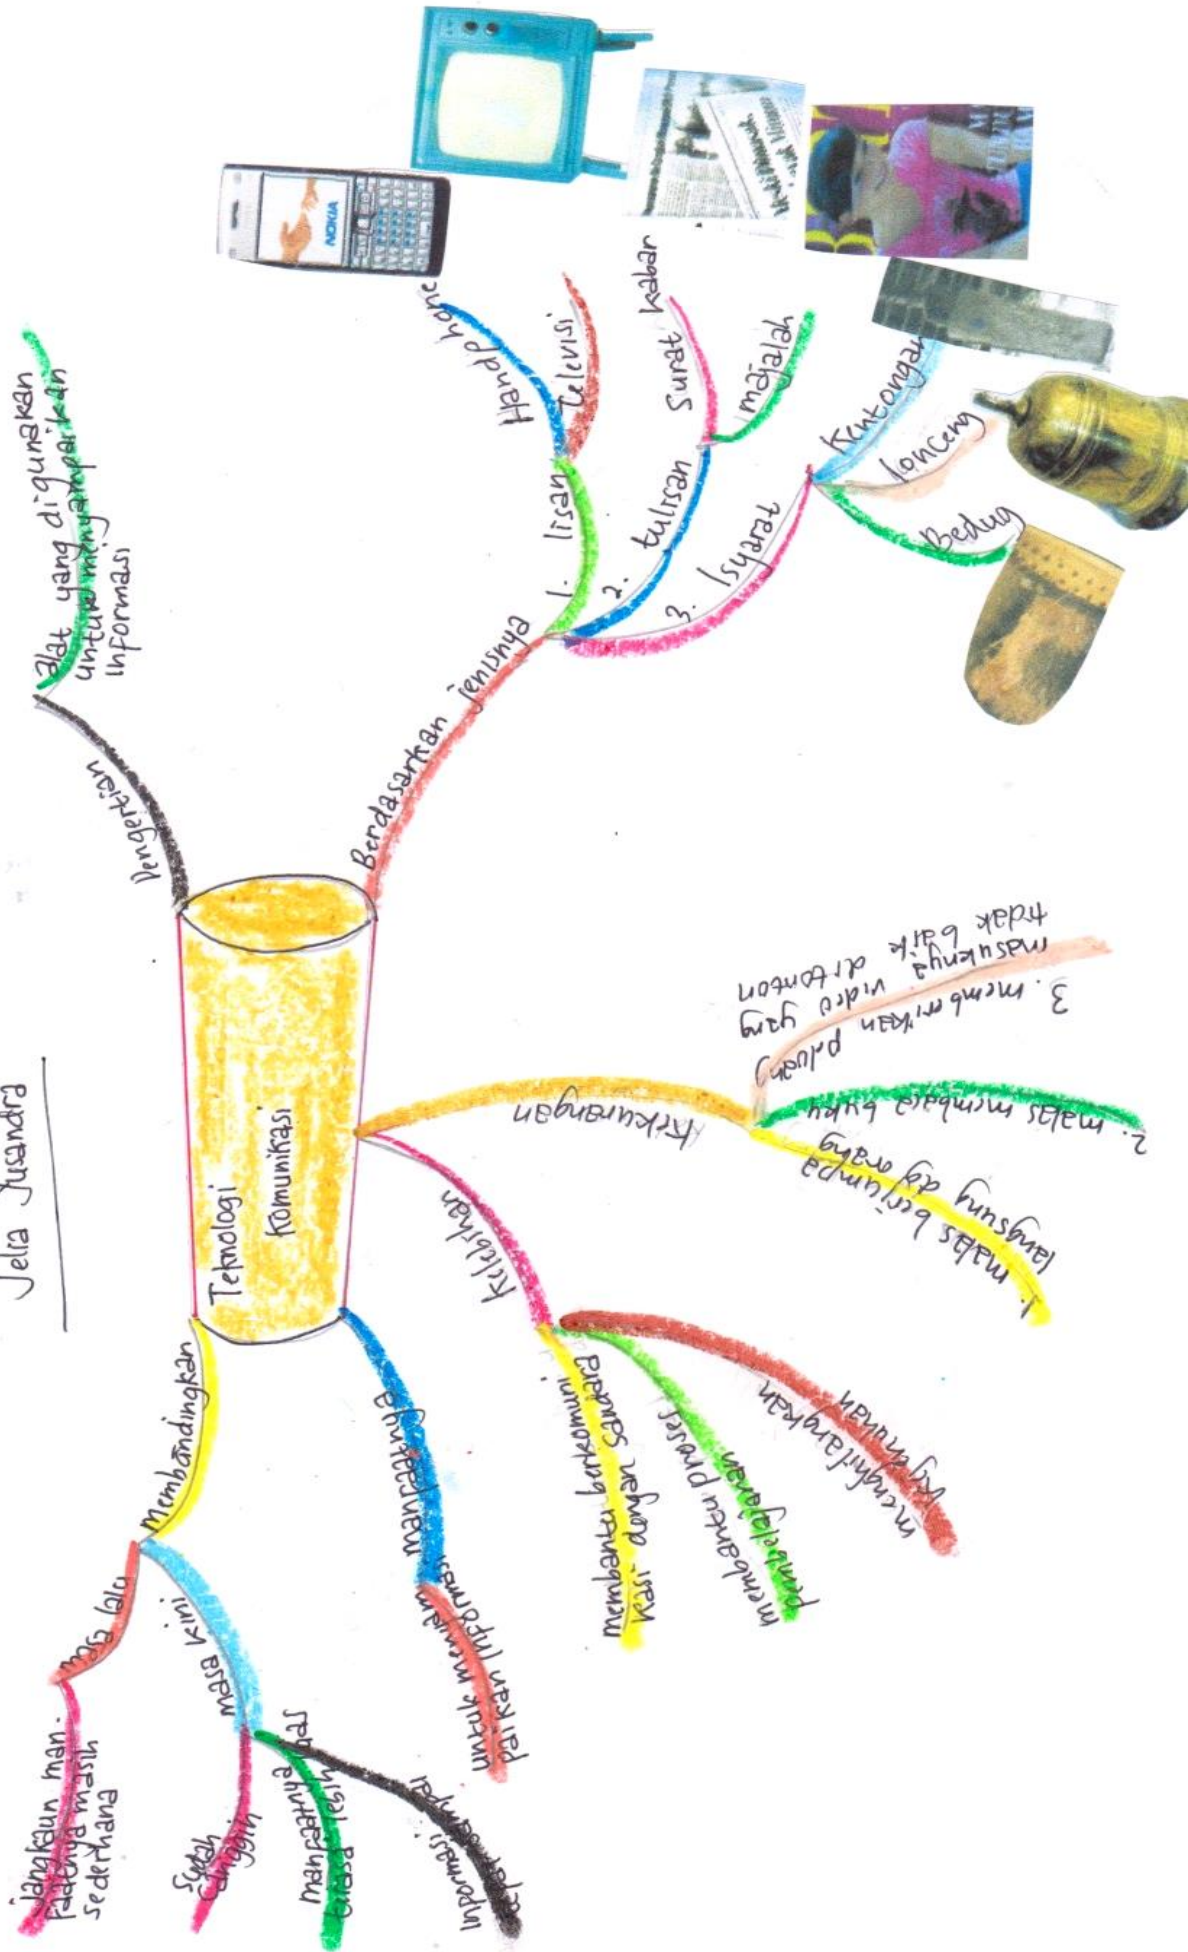 Jelia Yusandra
Teknologi
Komunikasi
Pengertian
alat yang digunakan
untuk menyampaikan
informasi
Berdasarkan jenisnya
1. lisan
Handphone
Televisi
2. tulisan
Surat kabar
majalah
3. Isyarat
Kentongan
lonceng
Bedug
NOKIA
Kekurangan
1. malas berjumpa
langsung dg orang
2. malas membaca buku
3. memberikan peluang
masuknya video yang
tidak baik ditonton
Kelebihan
membantu berkomuni
kasi dengan Saudara
membantu proses
pembelajaran
menghilangkan
Kejenuhan
manfaatnya
untuk menyam
paikan Informasi
Membandingkan
masa lalu
jangkaun man.
faatnya masih
sederhana
masa kini
Sudah
Canggih
manfaatnya
terasa lebih luas
Inpormasi
cepat sampai